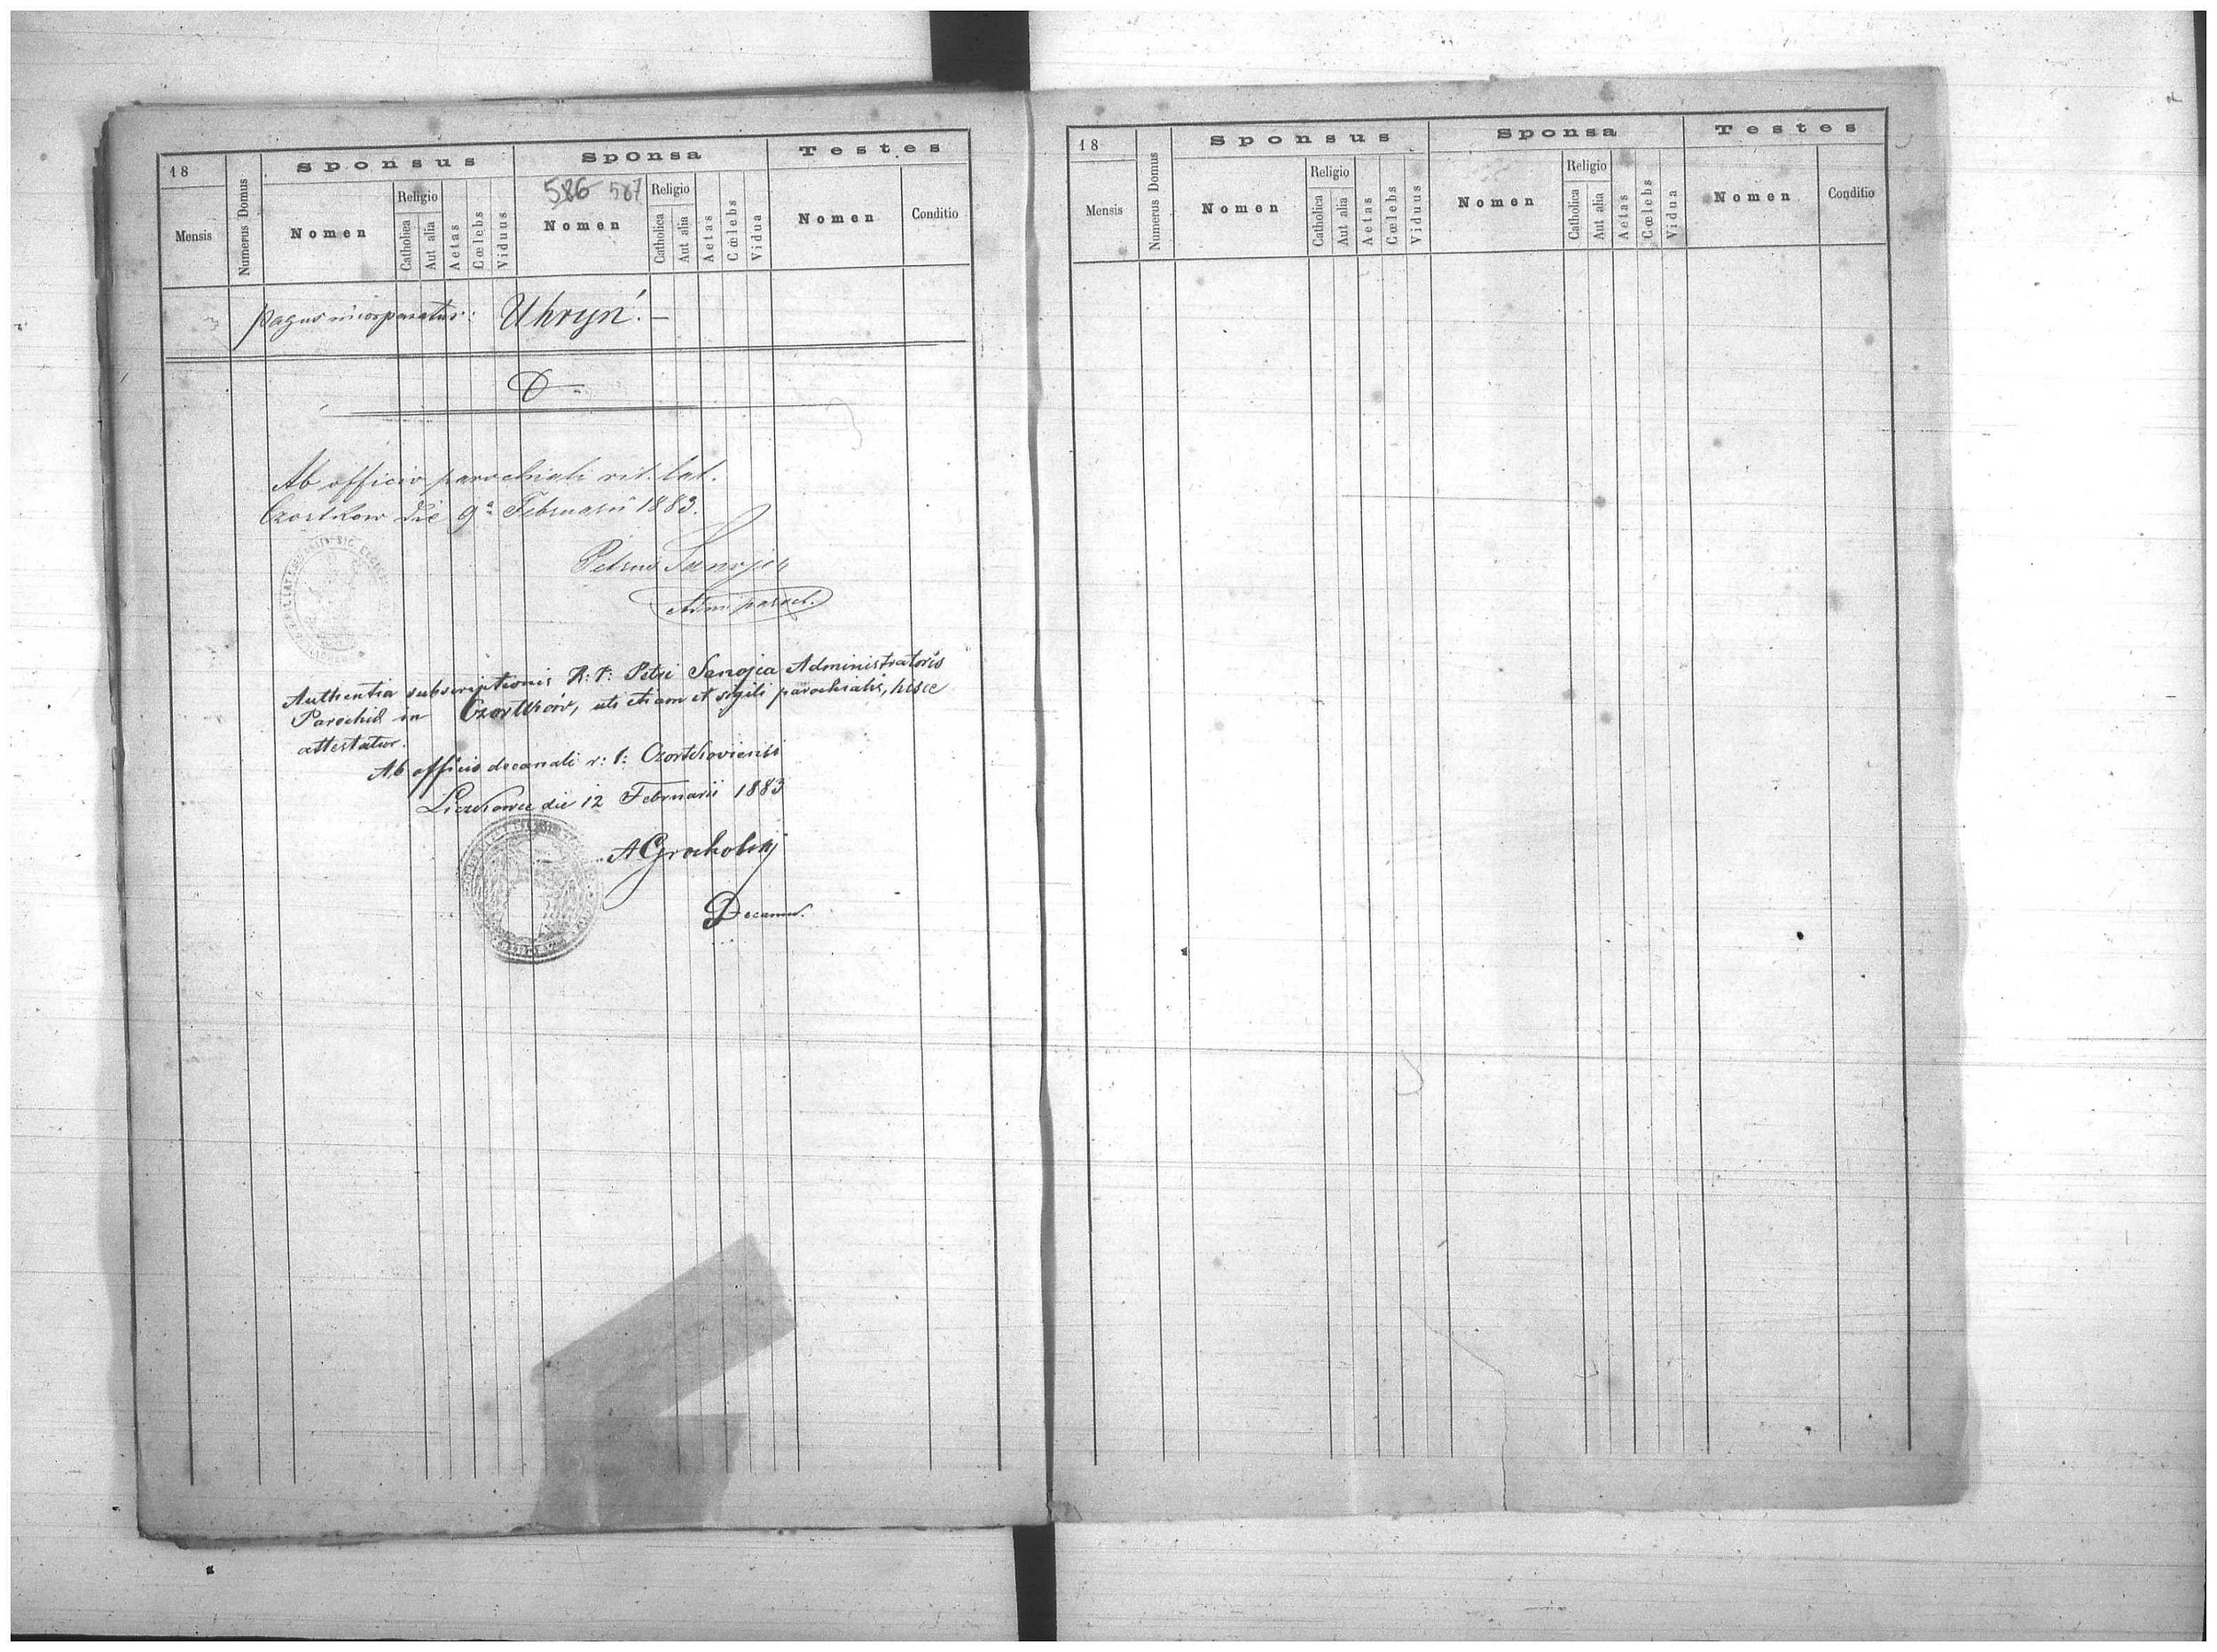 18
Mensis
Numerus Domus
Sponsus
Nomen
Religio
Catholica
Aut alia
Aetas
Cœlebs
Viduus
Sponsa
586 587
Nomen
Religio
Catholica
Aut alia
Aetas
Cœlebs
Vidua
Testes
Nomen
Conditio
pagus incorporatus: Uhryń. —
Ab officio parochiali rit. lat.
Czortkow die 9a Februarii 1883.
Petrus Sanojca
Adm. paroch.
Authentia subscriptionis R: P: Petri Sanojca Administratoris
Parochiæ in Czortków, uti etiam et sigili parochialis, hisce
attestatur.
Ab officio decanali r: l: Czortkoviensi
Liczkowce die 12 Februarii 1883
A Grocholsky
Decanus.
18
Mensis
Numerus Domus
Sponsus
Nomen
Religio
Catholica
Aut alia
Aetas
Cœlebs
Viduus
Sponsa
Nomen
Religio
Catholica
Aut alia
Aetas
Cœlebs
Vidua
Testes
Nomen
Conditio